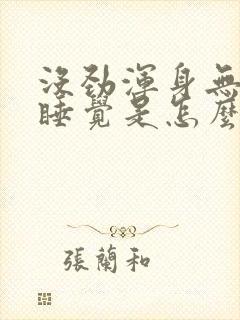 沒勁渾身無
睡覺是怎麼
張蘭和